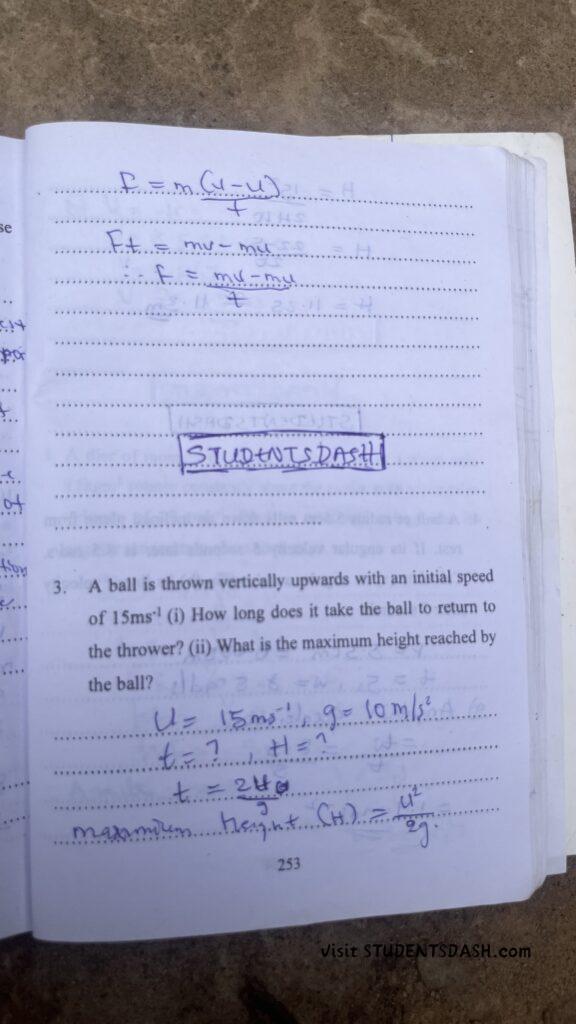 F = m(v-u)
t
Ft = mv - mu
∴ F = mv-mu
t
STUDENTSDASH
3. A ball is thrown vertically upwards with an initial speed
of 15ms⁻¹ (i) How long does it take the ball to return to
the thrower? (ii) What is the maximum height reached by
the ball?
U = 15ms⁻¹, g = 10m/s²
t = ? , H = ?
t = 2u
g
maximum height (H) = u²
2g.
253
Visit STUDENTSDASH.com